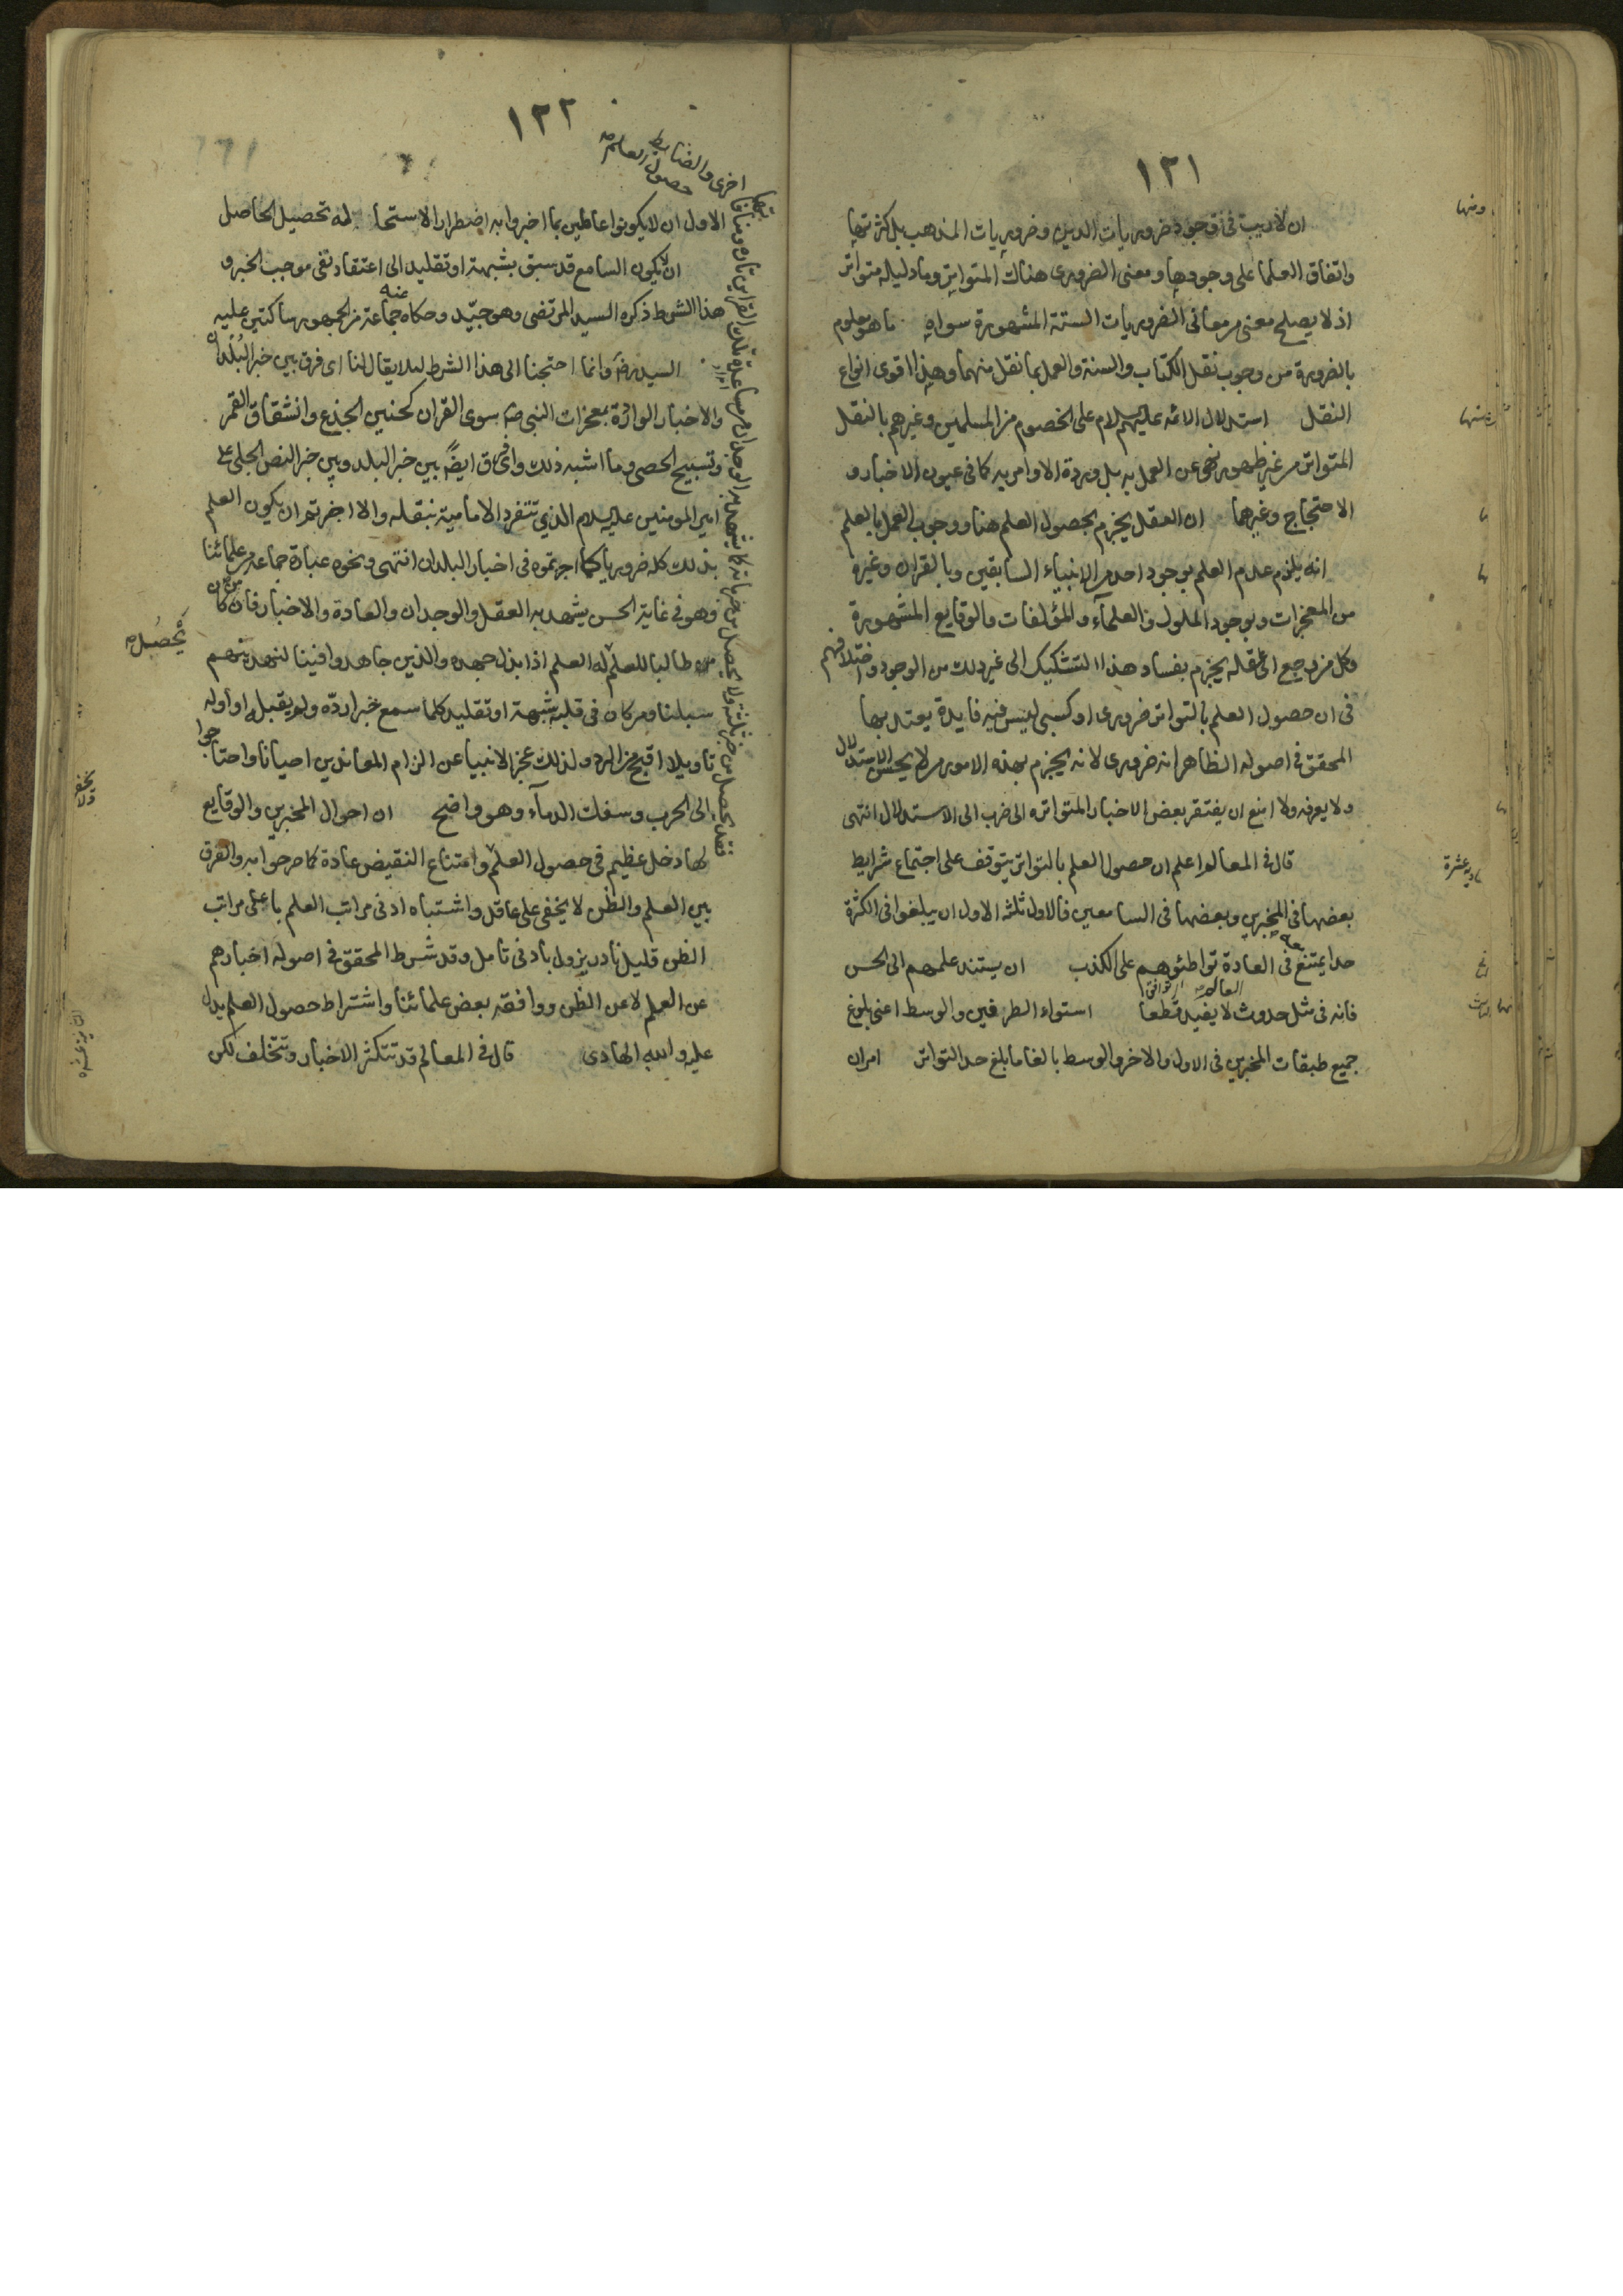 ١٢١
ومنها
ان لا ريب فى وجود ضروريات الدين وضروريات المذهب بل كثرتها
واتفاق العلما على وجودها ومعنى الضرورى هناك المتواتر وما دليله متواتر
اذ لا يصلح معنى من معانى الضروريات الستة المشهورة سواه ما هو معلوم
بالضرورة من وجوب نقل الكتاب والسنة والعمل بما نقل منهما وهذا اقوى انواع
النقل استدلال الائمه عليهم السلام على الخصوم من المسلمين وغيرهم بالنقل
المتواتر من غير ظهور نهى عن العمل به بل ورود الاوامر به كما فى عيون الاخبار و
الاحتجاج وغيرهما ان العقل يجزم بحصول العلم هنا ووجوب العمل بالعلم
انه يلزم عدم العلم بوجود احد من الانبياء السابقين وبالقران وغيره
من المعجزات وبوجود الملوك والعلمآء والمؤلفات والوقايع المشهورة
وكل من رجع الى عقله يجزم بفساد هذا التشكيك الى غير ذلك من الوجوه واختلافهم
فى ان حصول العلم بالتواتر ضرورى او كسبى ليس فيه فايدة يعتد بها
المحقق فى اصوله الظاهر انه ضرورى لانه يجزم بهذه الامور من لا يحسن الاستدلال
ولا يعرفه ولا امنع ان يفتقر بعض الاخبار المتواتره الى ضرب الى الاستدلال انتهى
قال فى المعالم اعلم ان حصول العلم بالتواتر يتوقف على اجتماع شرايط
بعضها فى المخبرين وبعضها فى السامعين فالاول ثلثه الاول ان يبلغوا فى الكثرة
حدا يمتنع معه فى العادة تواطئوهم على الكذب ان يستند علمهم الى الحس
فانه فى مثل حدوث العالم لا يفيد قطعا استواء الطرفين والوسط اعنى بلوغ
جميع طبقات المخبرين فى الاول والاخر والوسط بالغا ما بلغ حد التواتر امران
١٢٢
الاول ان لا يكونوا عالمين بما اخبروا به اضطرارا لاستحالة تحصيل الحاصل
ان لا يكون السامع قد سبق بشبهة او تقليد الى اعتقاد نفى موجب الخبر و
هذا الشرط ذكره السيد المرتضى وهو جيّد وحكاه عنه جماعة من الجمهور ساكتين عليه
السيد رض وانما احتجنا الى هذا الشرط لئلا يقال لنا اى فرق بين خبر البُلدان
والاخبار الواردة بمعجزات النبى ص سوى القران كحنين الجذع وانشقاق القمر
وتسبيح الحصى وما اشبه ذلك واى فرق ايضًا بين خبر البلد وبين خبر النص الجلى على
امير المومنين عليه السلام الذى تتفرد الامامية بنقله والا اجزتم ان يكون العلم
بذلك كله ضروريا كما اجزتموه فى اخبار البلدان انتهى ونحوه عبارة جماعة من علمائنا
وهو فى غاية الحسن يشهد به العقل والوجدان والعادة والاخبار فان من كان
من طالبا للعلم له العلم اذا بذل جهده والذين جاهدوا فينا لنهدينهم
يَحْصُل
سبلنا ومن كان فى قلبه شبهة او تقليد كلما سمع خبرا ردّه ولم يقبله او اوله
تاويلا اقبح من الرد ولذلك عجز الانبيا عن الزام المعاندين احيانا واحتاجوا
الى الحرب وسفك الدمآء وهو واضح ان احوال المخبرين والوقايع
لها دخل عظيم فى حصول العلم وامتناع النقيض عادة كما صرحوا به والفرق
بين العلم والظن لا يخفى على عاقل واشتباه ادنى مراتب العلم باعلى مراتب
الظن قليل نادر يزول بادنى تامل وقد شرط المحقق فى اصوله اخبارهم
عن العلم لا عن الظن ووافقه بعض علمائنا واشتراط حصول العلم يدل
عليه والله الهادى قال فى المعالم قد تتكثر الاخبار وتختلف لكن